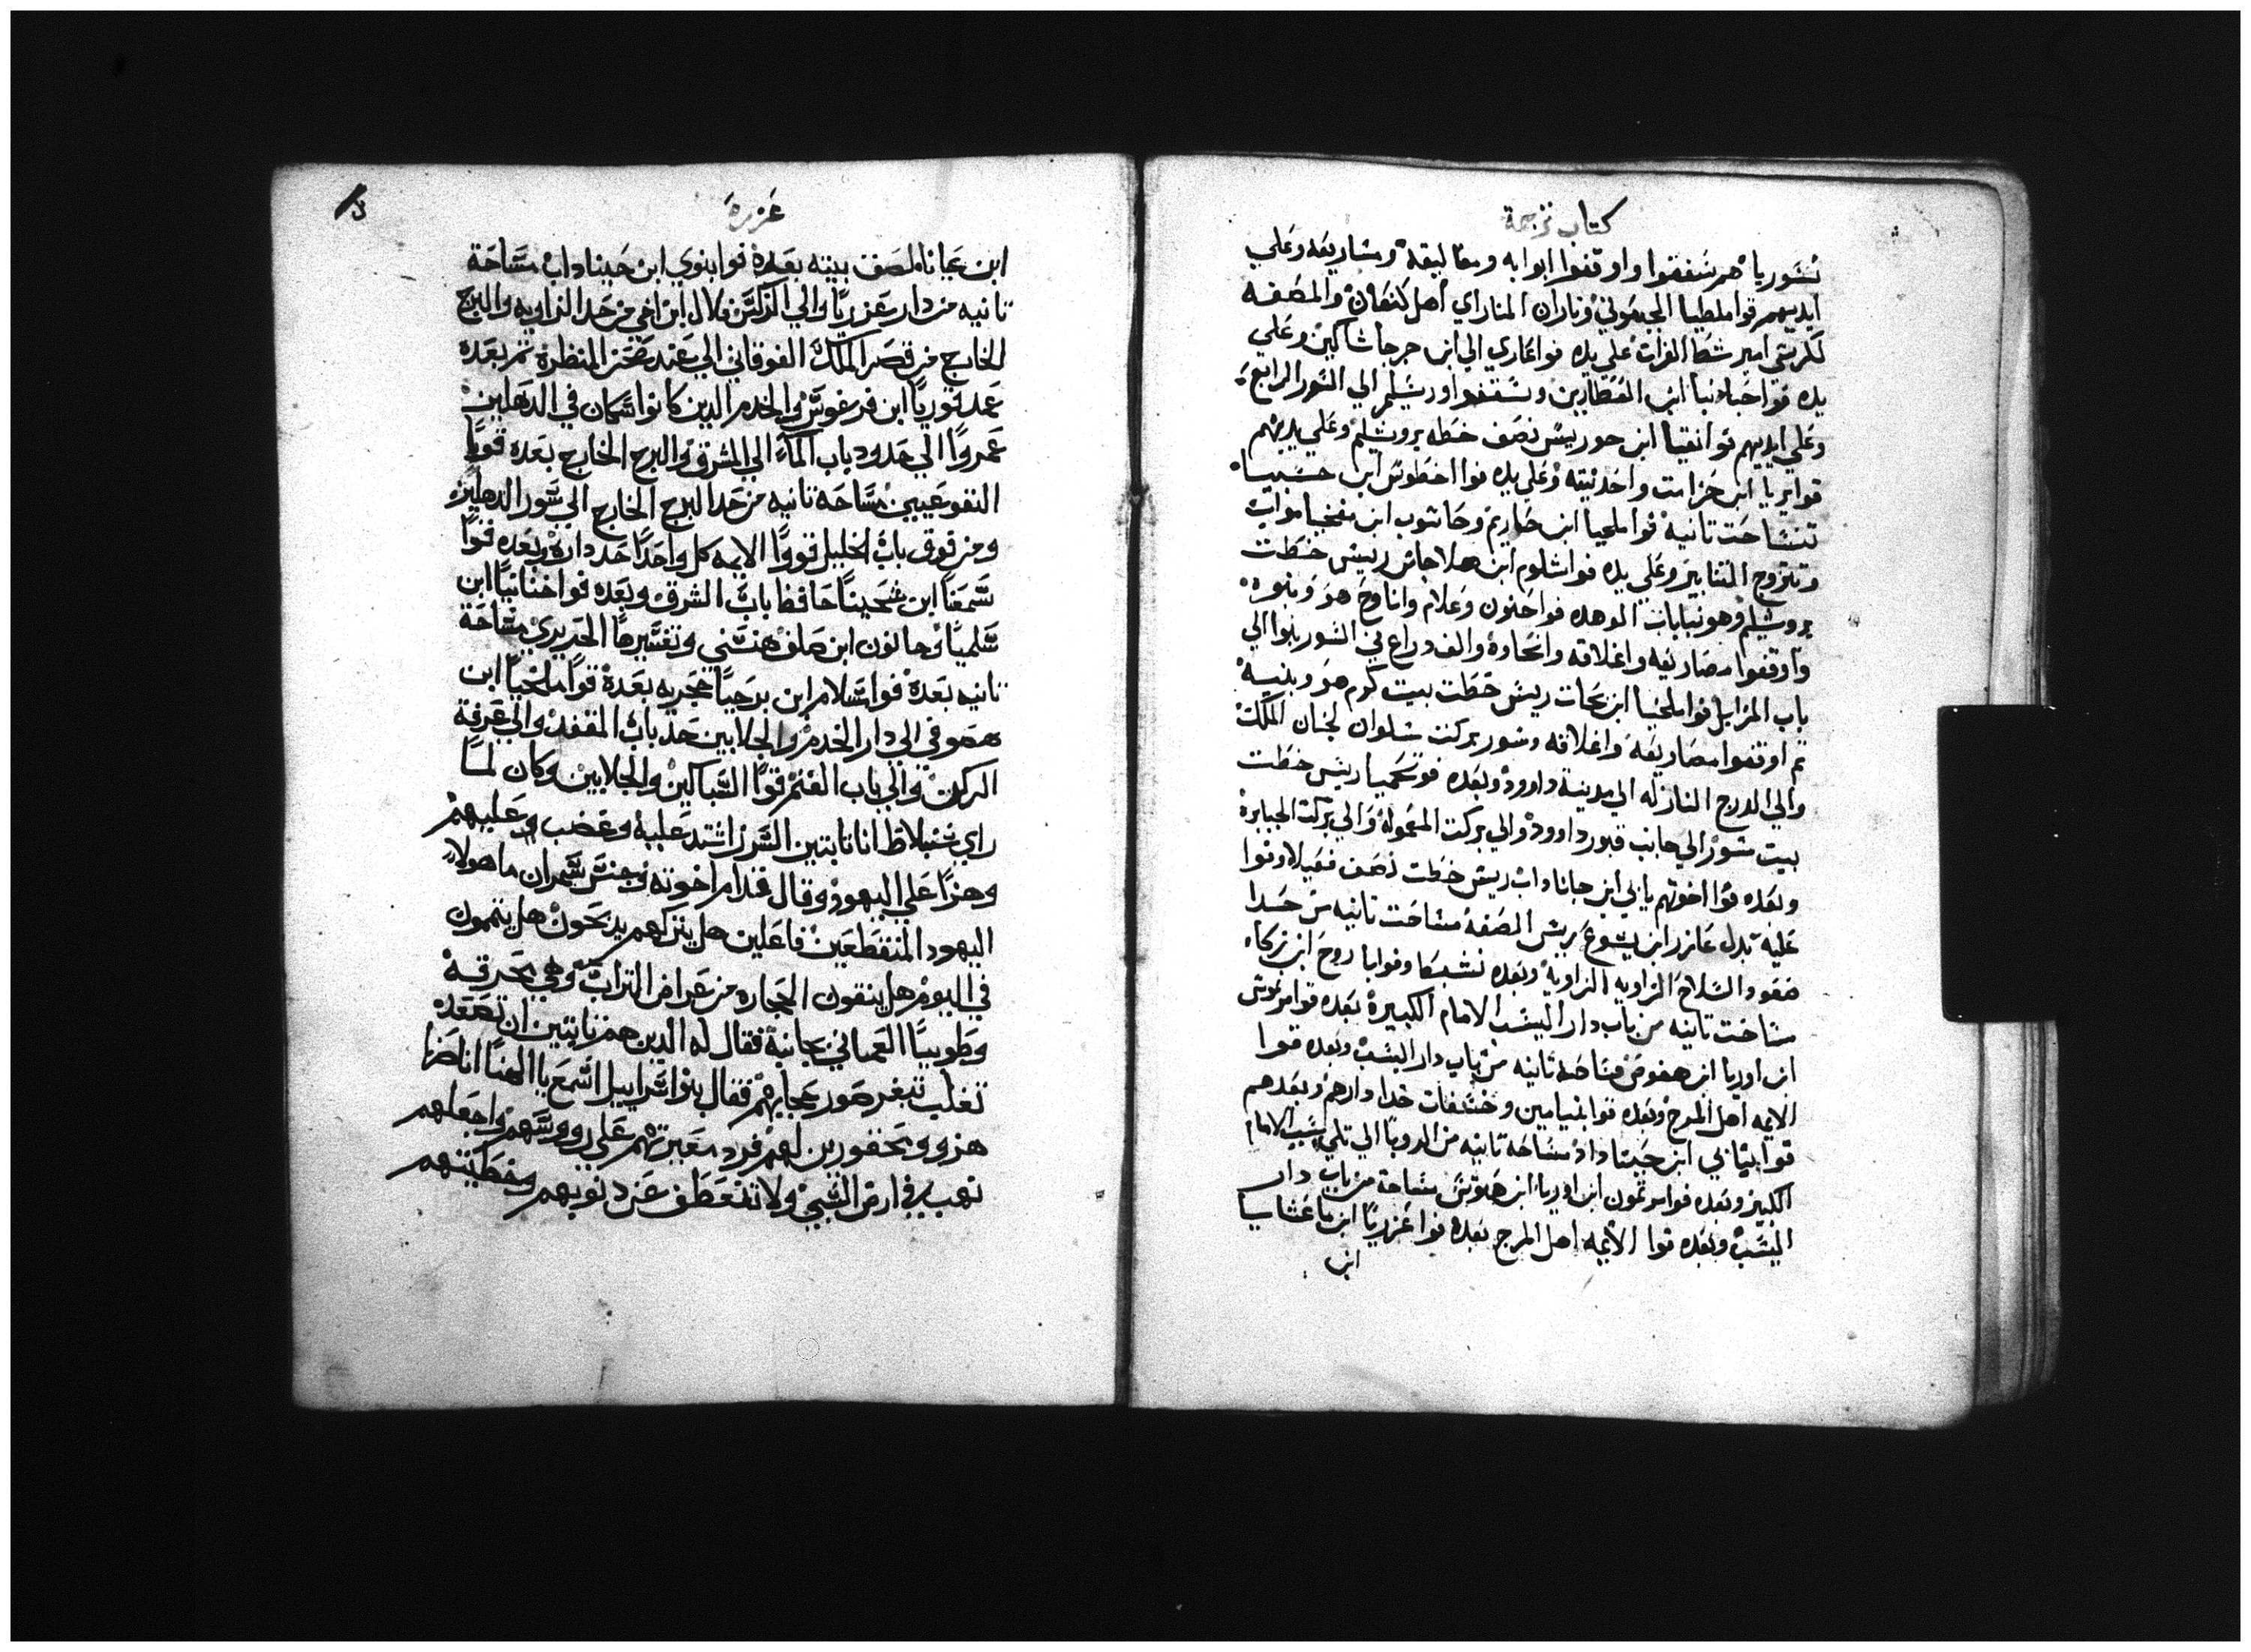 كتاب ترجمة
نسوريا هم سقفوا واوقفوا ابوابه ومغاليقه ومشاريعه وعلي
ايديهم قوا ملطيا الجبعوني وناران المناراي اهل كنعان والمصفه
لكرسي امير شط الفرات علي يده قوا عازي الي ابن حرجا شاكين وعلي
يده قوا حنانيا ابن العطارين وسقفوا اورشليم الي السور الرابع
وعلي ايديهم قوا انقيا ابن حوريس نصف خطه يروشليم وعلي يديهم
قوا يريا ابن حزامت واخد بيته وعلي يده قوا اخطوس ابن حسبيا
مساحت تانيه قوا ملحيا ابن حاريم وحاشوب ابن مفخيا مواب
وتنزوج التنانير وعلي يده قوا شلوم ابن هلاجاس رييس خطت
يروشليم وهو نيابات الوهده قوا حنون وعلام واناوح هو وبنوه
واوقفوا مصاريعه واغلاقه وانجاده والف دراع في السور بنوا الي
باب المزابل قوا ملخيا ابن نحات رييس خطت بيت كرم هو وبنيه
تم اوقفوا مصاريعه واغلاقه وسور بركت سلوان لجنان الملك
والي الدرج النازله الي مدينة داوود وبعده قو نحميا رييس خطت
بيت سور الي جانب قبور داوود والي بركت المعموله والي بركت الجبابره
وبعده قوا اخوتهم يابي ابن جاناداب رييس خطت نصف فعيلا وقوا
عليه بدل عازر ابن يشوع رييس المصفه مساحت تانيه من حدا
صعود السلاح الزاويه الزاويه وبعده نشبكا وقوا باروح ابن زكاء
مساحت تانيه من باب دار اليشب الامام الكبيرة بعده قوا مرنوش
ابن اوريا ابن هفوص مساحه تانيه من باب دار اليشب وبعده قوا
الايمه اهل المرج وبعده قوا بنيامين وخشعات خدا دارهم وبعدهم
قوا بياي ابن جيناداد مساحه تانيه من الدويا الي تلي يشب الامام
الكبير وبعده قوا مرتمون ابن اوريا ابن هلوتش مساحة من باب دار
اليشب وبعده قوا الايمه اهل المرج بعده قوا عزريا ابن ماعشاسيا
ابن
عزره
ابن عنانا لصف بيته بعده قوا بنوي ابن جيناداب مساحة
تانيه من دار عزريا والي الركن فلال ابن اخي من حد الزاويه والبرج
الخارج من قصر الملك الفوقاني الي عند صحن المنظره تم بعده
عمد قوريا ابن فرعوس والخدم الدين كانوا سكان في الدهليز
عمروا الي حدود باب الماء الي المشرق والبرج الخارج بعده قويا
النقوعيين مساحه تانيه من حد البرج الخارج الي سور الدهليز
ومن فوق باب الخليل قووا الايمه كل واحدا حد داره وبعده قوا
سمعنا ابن شحينا حافظ باب الشرق وبعده قوا حنانيا ابن
سلميا وحانون ابن صلف هستني وتفسيرها الحديدي مساحة
تانيه بعده قوا سلام ابن برحيا حجريه بعدة قوا ملخيا ابن
هصوفي الي دار الخدم والجلابين حد باب المقفد والي غرفة
الركن والي باب الغنم قووا السباكين والجلابين وكان لما
راي سنبلاط انا نابتين السور اشتد عليه وغضب وعليهم
وهزا علي اليهود وقال قدام اخوته وجنس سمران ما هولاء
اليهود المنقطعين فاعلين هل يتركهم يدبحون هل يتممون
في اليوم هل ينقون الحجاره من عراض التراب وهي محرقة
وطوبيا العماني بجانبه فقال له الدين هم نابتين ان تصعد
تعلب تبغر صور حجارهم فقال بنوا اسراييل اسمع يا الهنا انا صرنا
هزو ومحقورين لهم فرد معيرتهم علي رووسهم واجعلهم
نهب في ارض السبي ولا تنعطف عن دنوبهم وخطيتهم